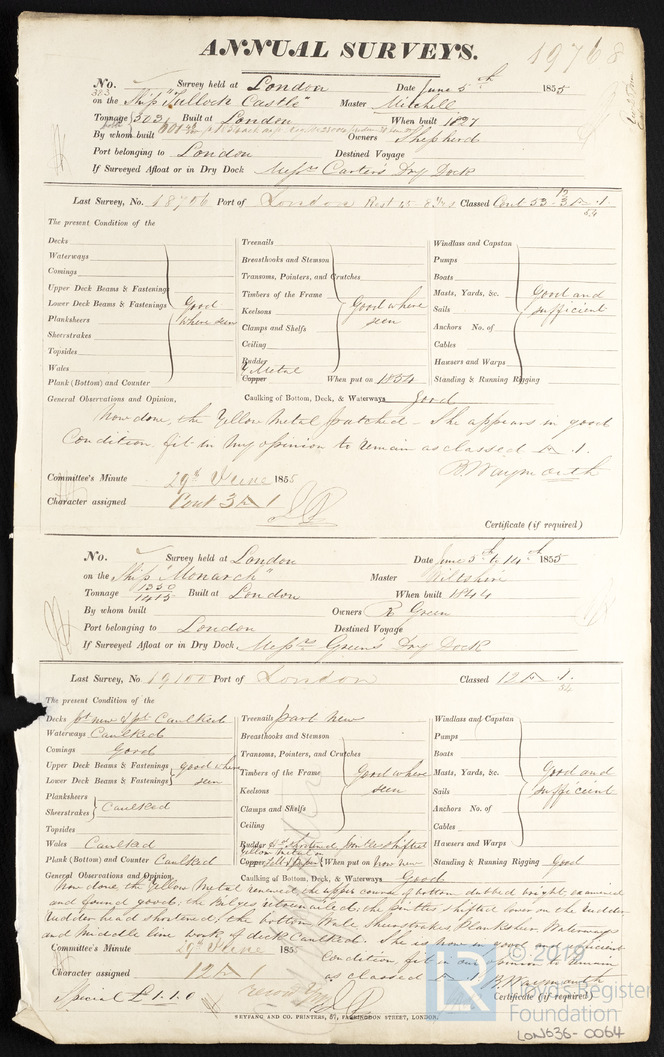 ANNUAL SURVEYS.
19768
No. Survey held at London Date June 5th 1855
on the Ship "Tullock Castle" Master Mitchell
Tonnage 503 Built at London When built 1827
By whom built Owners Shepherd
Port belonging to London Destined Voyage
If Surveyed Afloat or in Dry Dock Messrs Carter's Dry Dock
Last Survey, No. 18706 Port of London Rest 45 Classed Cont 53
The present Condition of the
Decks Treenails Windlass and Capstan
Waterways Breasthooks and Stemson Pumps
Comings Transoms, Pointers, and Crutches Boats
Upper Deck Beams & Fastenings Timbers of the Frame Masts, Yards, &c. Good and
Lower Deck Beams & Fastenings Good Keelsons Good where Sails sufficient
Planksheers where seen Clamps and Shelfs seen Anchors No. of
Sheerstrakes Ceiling Cables
Topsides Rudder Hawsers and Warps
Wales Y Metal
Plank (Bottom) and Counter Copper When put on 1854 Standing & Running Rigging
General Observations and Opinion, Caulking of Bottom, Deck, & Waterways Good
Now done, the Yellow Metal patched – She appears in good
Condition, fit in my opinion to remain as classed A 1.
B. Waymouth
Committee's Minute 29th June 1855
Character assigned Cont 3 A 1
Certificate (if required)
No. Survey held at London Date June 5th to 14th 1855
on the Ship "Monarch" Master Wiltshire
Tonnage 1350 1415 Built at London When built 1844
By whom built Owners R Green
Port belonging to London Destined Voyage
If Surveyed Afloat or in Dry Dock Messrs Green's Dry Dock
Last Survey, No. 19100 Port of London Classed 12 A 1. 54
The present Condition of the
Decks pt new & pt Caulked Treenails part new Windlass and Capstan
Waterways Caulked Breasthooks and Stemson Pumps
Comings Good Transoms, Pointers, and Crutches Boats
Upper Deck Beams & Fastenings good where Timbers of the Frame Good where Masts, Yards, &c. Good and
Lower Deck Beams & Fastenings seen Keelsons seen Sails sufficient
Planksheers Clamps and Shelfs Anchors No. of
Sheerstrakes Caulked Ceiling Cables
Topsides
Wales Caulked Rudder shortened, pintles shifted Hawsers and Warps
Yellow Metal on
Plank (Bottom) and Counter Caulked Copper felt & paper When put on now new Standing & Running Rigging Good
General Observations and Opinion, Caulking of Bottom, Deck, & Waterways Good
Now done, the Yellow Metal renewed, the upper course of bottom dubbed bright, examined
and found good, the Bilges retreenailed, the pintles shifted lower on the Rudder
Rudder head shortened, the bottom, Wale, Sheerstrakes, Planksheer, Waterways
and middle line work of deck Caulked. She is now in good and efficient
Condition, fit in our opinion to remain
as classed A 1. B. Waymouth
Committee's Minute 29th June 1855
Character assigned 12 A 1
Special £1.1.0
Certificate (if required)
SEYFANG AND CO. PRINTERS, 57, FARRINGDON STREET, LONDON.
LR
© 2019
Lloyd's Register
Foundation
LON636-0064